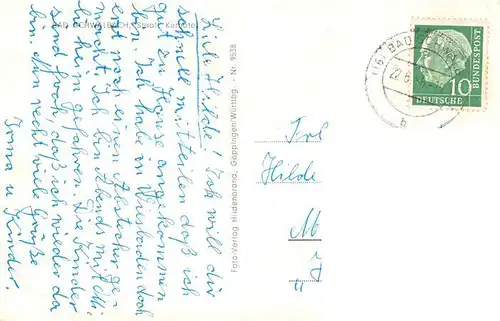 BAD SCHWALBACH, Staatl. Kurhotel
Liebe Hilde! Ich will dir
schnell mitteilen daß ich
gut zu Hause angekommen
bin. Ich habe in Wiesbaden doch
erst noch einen Abstecher ge-
macht. Ich bin Abends mit
heim gefahren. Die Kinder
sind froh, daß ich wieder da
bin. Nun recht viele Grüße
Irma u
Kinder.
Foto-Verlag Hildenbrand, Göppingen/Württbg. - Nr. 9538
(16) BAD
22.8.
b
DEUTSCHE
BUNDESPOST
10
Frl
Hilde